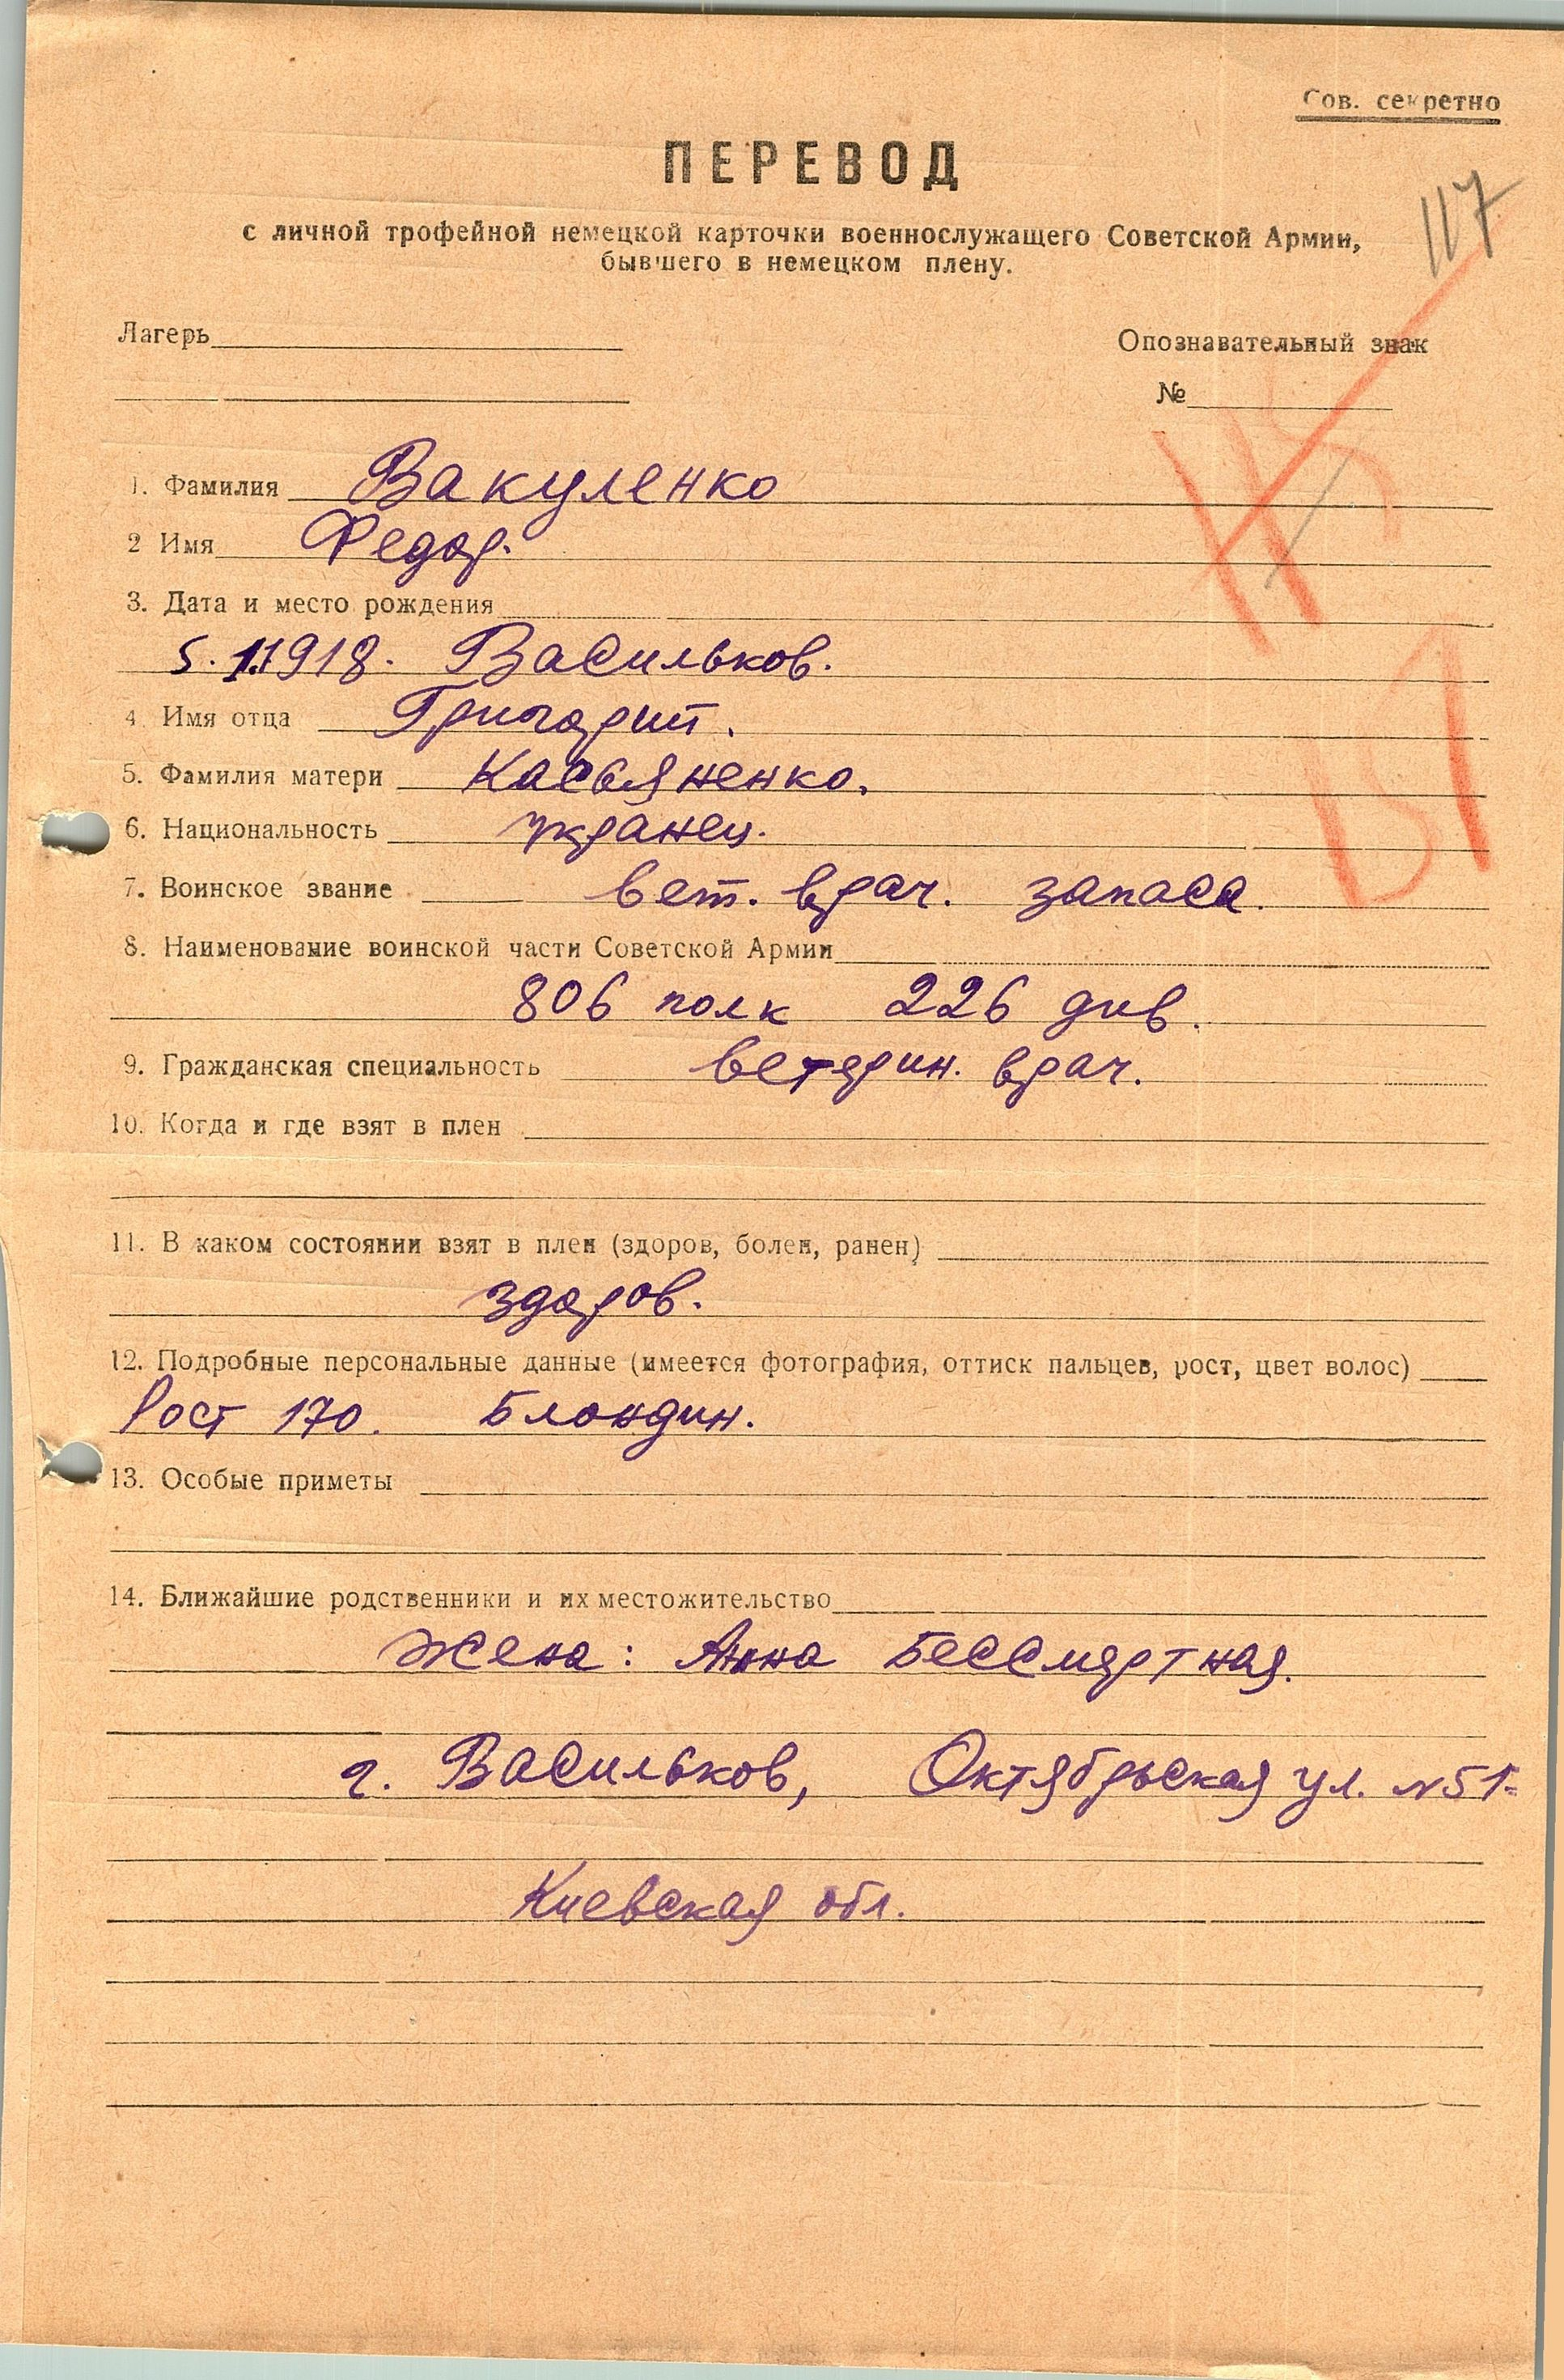 Сов. секретно
ПЕРЕВОД
117
с личной трофейной немецкой карточки военнослужащего Советской Армии,
бывшего в немецком плену.
Лагерь
Опознавательный знак
№
1. Фамилия Вакуленко
2 Имя Федор.
3. Дата и место рождения
5.1.1918. Васильков.
4. Имя отца Григорий.
5. Фамилия матери Касьяненко.
6. Национальность укранец.
7. Воинское звание вет. врач. запаса.
8. Наименование воинской части Советской Армии
806 полк 226 див.
9. Гражданская специальность ветерин. врач.
10. Когда и где взят в плен
11. В каком состоянии взят в плен (здоров, болен, ранен)
здоров.
12. Подробные персональные данные (имеется фотография, оттиск пальцев, рост, цвет волос)
Рост 170. Блондин.
13. Особые приметы
14. Ближайшие родственники и их местожительство
Жена: Анна Бессмертная.
г. Васильков, Октябрьская ул. №51.
Киевская обл.